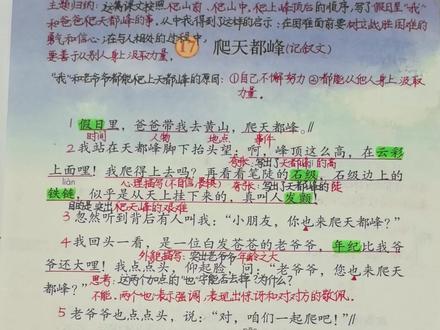 主题归纳：这篇课文按照爬山前、爬山中、爬上峰顶后的顺序，写了假日里"我"
和爸爸爬天都峰的事，从中我得到了这样的启示：在困难面前要树立战胜困难的
勇气和信心；在与人相处的过程中，
要善于从别人身上汲取力量。
17 爬天都峰(记叙文)
"我"和老爷爷都能爬上天都峰的原因：①自己不懈努力②都能从他人身上汲取
力量。
1 假日里，爸爸带我去黄山，爬天都峰。//
时间 人物 地点 事件
2 我站在天都峰脚下抬头望：啊，峰顶这么高，在云彩
夸张：写出了天都峰的高
上面哩！我爬得上去吗？再看看笔陡的石级，石级边上的
liàn 心理描写(不自信、畏惧) 夸张：写出了天都峰的陡
铁链，似乎是从天上挂下来的，真叫人发颤！
目的是突出爬天都峰的艰难
3 忽然听到背后有人叫我："小朋友，你也来爬天都峰？"
4 我回头一看，是一位白发苍苍的老爷爷，年纪比我爷
外貌描写：突出老爷爷年龄之大
爷还大哩！我点点头，仰起脸，问："老爷爷，您也来爬天
思考：这两个加点的"也"字能否去掉？为什么？
都峰？"
不能，两个"也"表示强调，表现出惊讶和对对方的敬佩。
5 老爷爷也点点头，说："对，咱们一起爬吧！"//